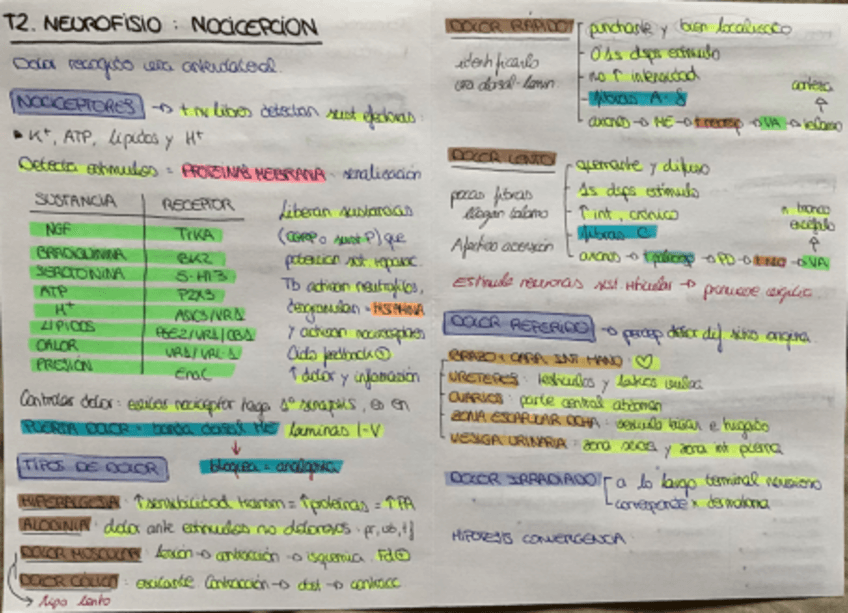 T2. NEUROFISIO : NOCICEPCION
Dolor recogido vía anterolateral.
NOCICEPTORES → t nv libres detectan sust efectoras:
K+, ATP, lípidos y H+
Detecta estímulos = PROTEÍNAS MEMBRANA · señalización
SUSTANCIA RECEPTOR
NGF TrKA
BRADIQUININA BK2
SEROTONINA 5-HT3
ATP P2X3
H+ ASICS/VR1
LIPIDOS PGE2/VR1/CB1
CALOR VR1/VRL-1
PRESIÓN Enac
Liberan sustancias
(CGRP o sust P) que
potencian
Tb activan neutrófilos,
desgranulan = HISTAMINA
y activan nociceptores
Ciclo feedback ⊕
↑ dolor y inflamación
Controlar dolor: nociceptor haga 1ª sinapsis, en
PUERTA DOLOR = dorsal ME láminas I-V
bloquea = analgesia
TIPOS DE DOLOR
HIPERALGESIA: ↑ sensibilidad transm = ↑ proteínas = ↑ PA
ALODINIA: dolor ante estímulos no dolorosos:
DOLOR MUSCULAR: lesión → contracción → isquemia. Fd ⊕
DOLOR CÓLICO: excitante contracción → dist → contracc
→ tipo lento
DOLOR RÁPIDO
identificarlo
punchante y buen localizado
0'1s dsps estímulo
no ↑ intensidad
fibras A-δ
axones → ME → → VA → tálamo
corteza
DOLOR LENTO
pocas fibras
llegan tálamo
quemante y difuso
1s dsps estímulo
↑ int, crónico
fibras C
axones → → → → VA
n tronco
encéfalo
Estimula neuronas sust reticular → permanece
DOLOR REFERIDO → percep dolor dif sitio origina
BRAZO + CARA INT MANO: ♡
URETERES: testículos y
OVARIOS: parte central abdomen
ZONA ESCAPULAR DCHA: vesícula biliar e hígado
VEJIGA URINARIA: zona sacra y zona int pierna
DOLOR IRRADIADO a lo largo terminal nervioso
corresponde x dermatoma
HIPOTESIS CONVERGENCIA: